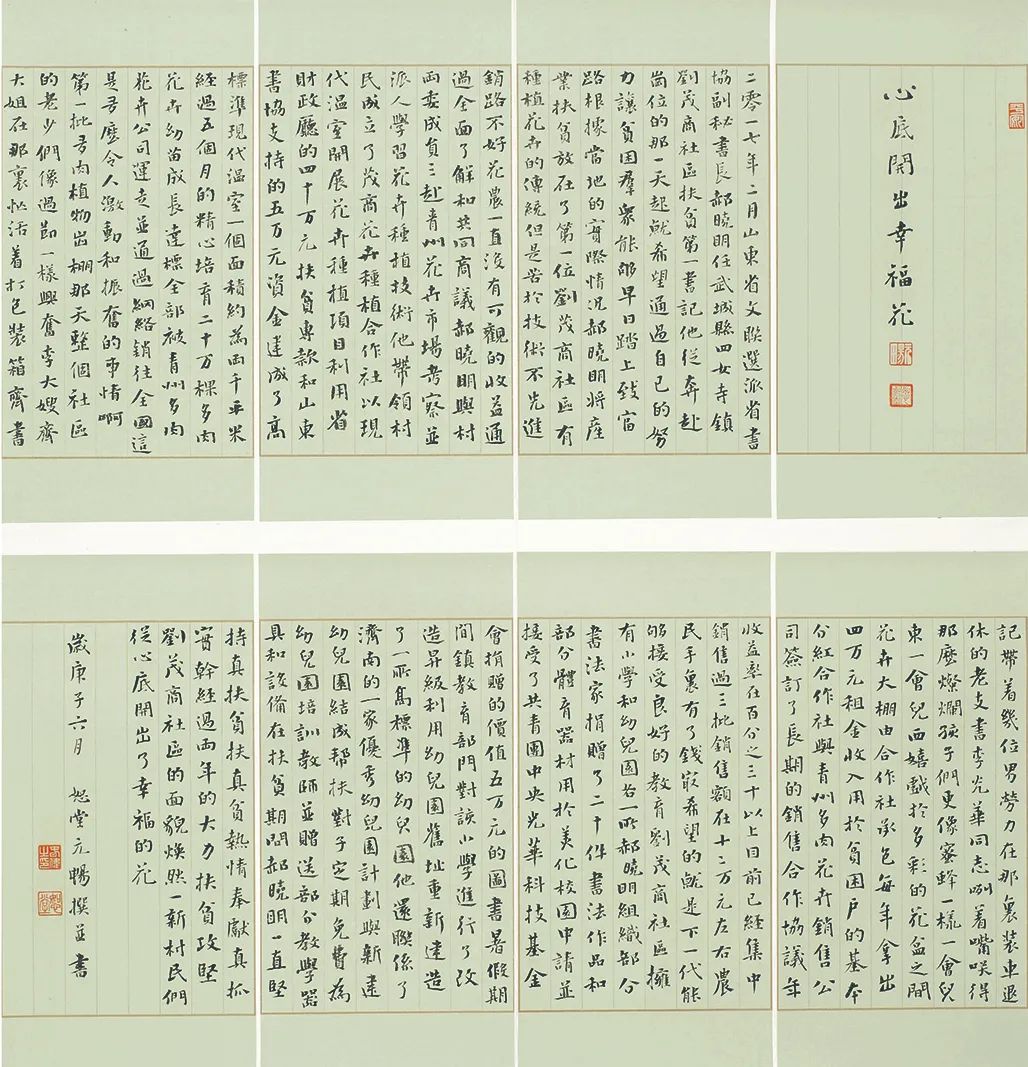 心底開出幸福花
二零一七年二月山東省文聯選派省書
協副秘書長郝曉明任武城縣四女寺鎮
劉茂商社區扶貧第一書記他從奔赴
崗位的那一天起就希望通過自己的努
力讓貧困羣衆能夠早日踏上致富
路根據當地的實際情況郝曉明將産
業扶貧放在了第一位劉茂商社區有
種植花卉的傳統但是苦於技術不先進
銷路不好花農一直沒有可觀的收益通
過全面了解和共同商議郝曉明與村
兩委成員三赴青州花卉市場考察並
派人學習花卉種植技術他帶領村
民成立了茂商花卉種植合作社以現
代温室開展花卉種植項目利用省
財政廳的四十万元扶貧專款和山東
書協支持的五万元資金建成了高
標準現代温室一個面積約為兩千平米
經過五個月的精心培育二十万棵多肉
花卉幼苗成長達標全部被青州多肉
花卉公司運走並通過網絡銷往全國這
是多麽令人激動和振奮的事情啊
第一批多肉植物出棚那天整個社區
的老少們像過節一樣興奮李大嫂齊
大姐在那裏忙活着打包裝箱齊書
記帶着幾位男勞力在那裏装車退
休的老支書李光華同志咧着嘴咲得
那麽燦爛孩子們更像蜜蜂一樣一會兒
東一會兒西嬉戲於多彩的花盆之間
花卉大棚由合作社承包每年拿出
四万元租金收入用於貧困户的基本
分紅合作社與青州多肉花卉銷售公
司簽訂了長期的銷售合作協議年
收益率在百分之三十以上目前已經集中
銷售過三批銷售額在十二万元左右農
民手裏有了錢最希望的就是下一代能
够接受良好的教育劉茂商社區擁
有小學和幼兒園各一所郝曉明組織部分
書法家捐贈了二十件書法作品和
部分體育器材用於美化校園申請並
接受了共青團中央光華科技基金
會捐贈的價值五万元的圖書暑假期
間鎮教育部門對該小學進行了改
造昇級利用幼兒園舊址重新建造
了一所高標準的幼兒園他還聯係了
濟南的一家優秀幼兒園計劃與新建
幼兒園結成帮扶對子定期免費為
幼兒園培訓教師並贈送部分教學器
具和設備在扶貧期間郝曉明一直堅
持真扶貧扶真貧熱情奉獻真抓
實幹經過兩年的大力扶貧攻堅
劉茂商社區的面貌煥然一新村民們
從心底開出了幸福的花
歲庚子六月 恕堂元暢撰並書